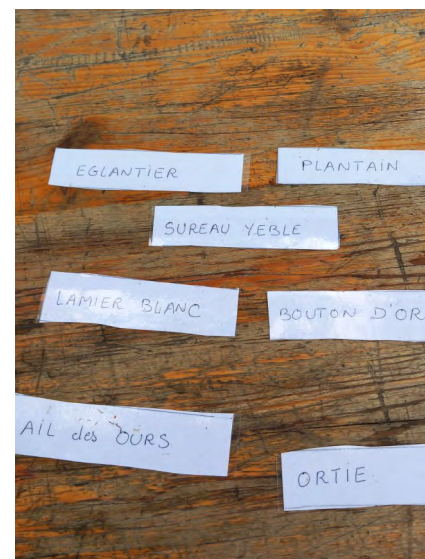 EGLANTIER
PLANTAIN
SUREAU YEBLE
LAMIER BLANC
BOUTON D'OR
AIL des OURS
ORTIE